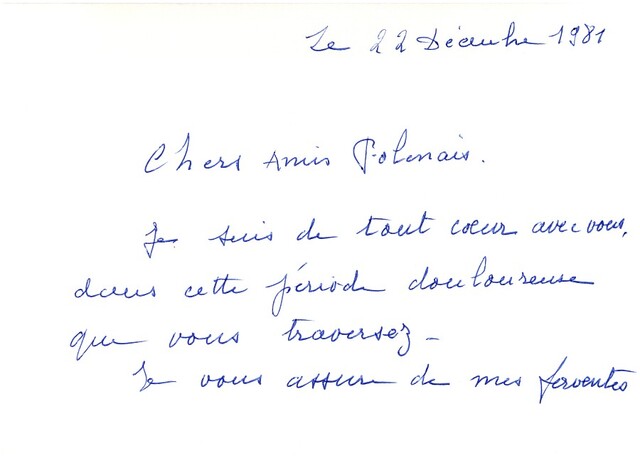 Le 22 Décembre 1981
Chers Amis Polonais.
Je suis de tout cœur avec vous,
dans cette période douloureuse
que vous traversez –
Je vous assure de mes ferventes